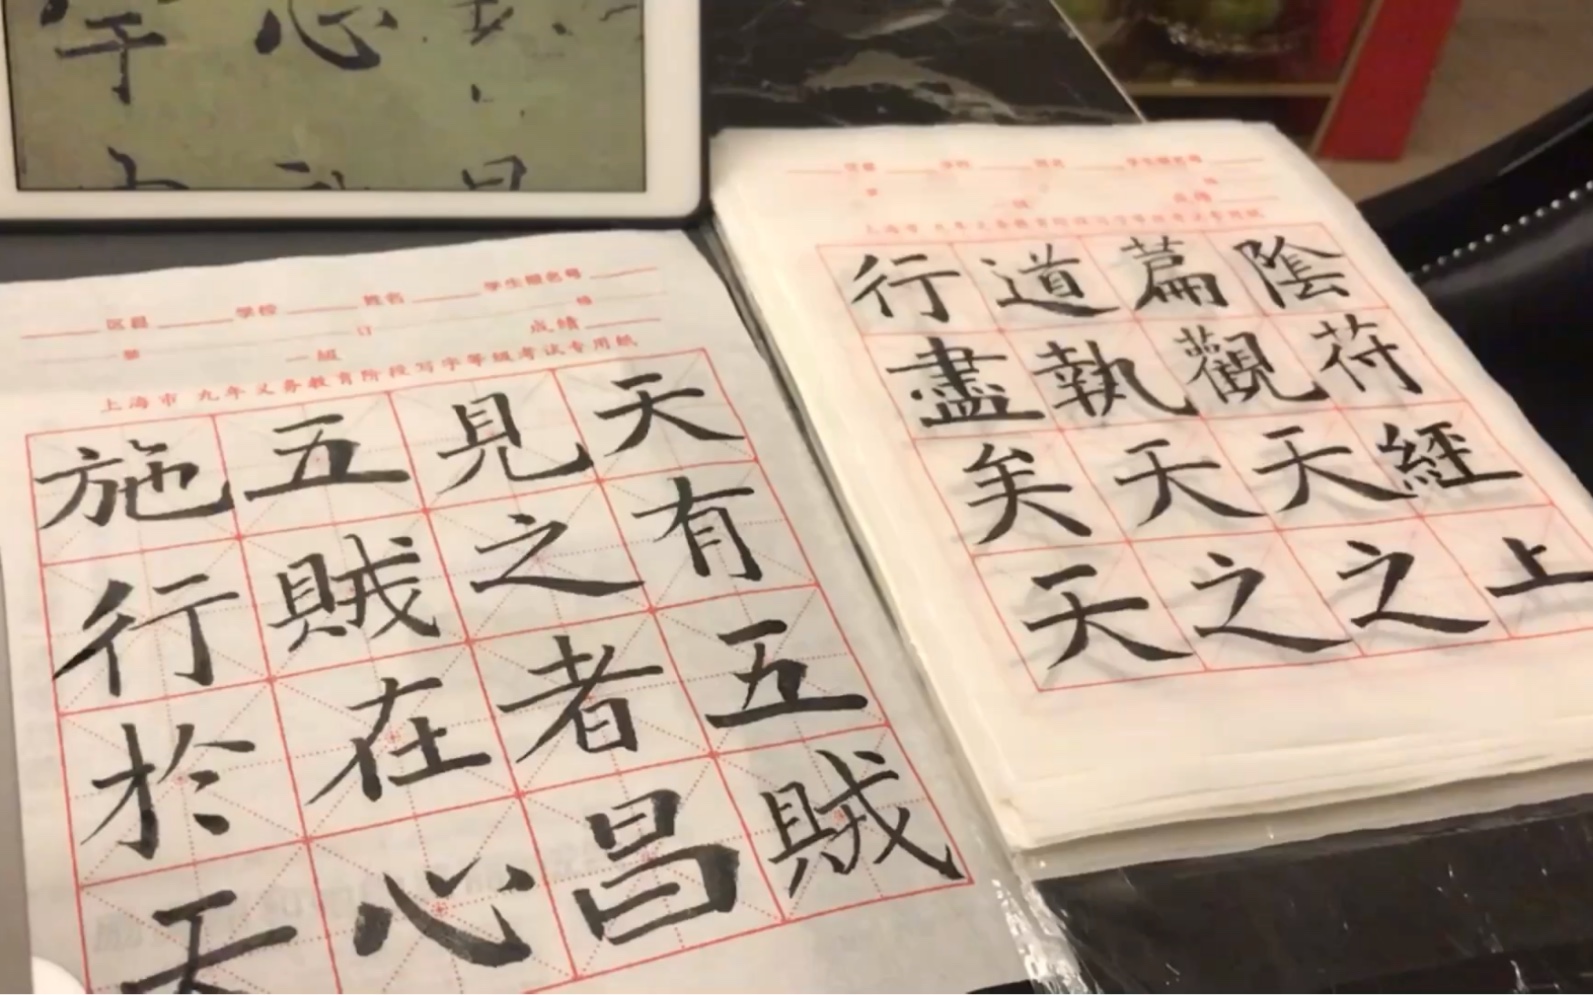 上海市 九年义务教育阶段写字等级考试专用纸
陰符經上
篇觀天之
道執天之
行盡矣天
区县 学校 姓名 学生报名号
订
一组 成绩
上海市 九年义务教育阶段写字等级考试专用纸
天有五賊
見之者昌
五賊在心
施行於天
心